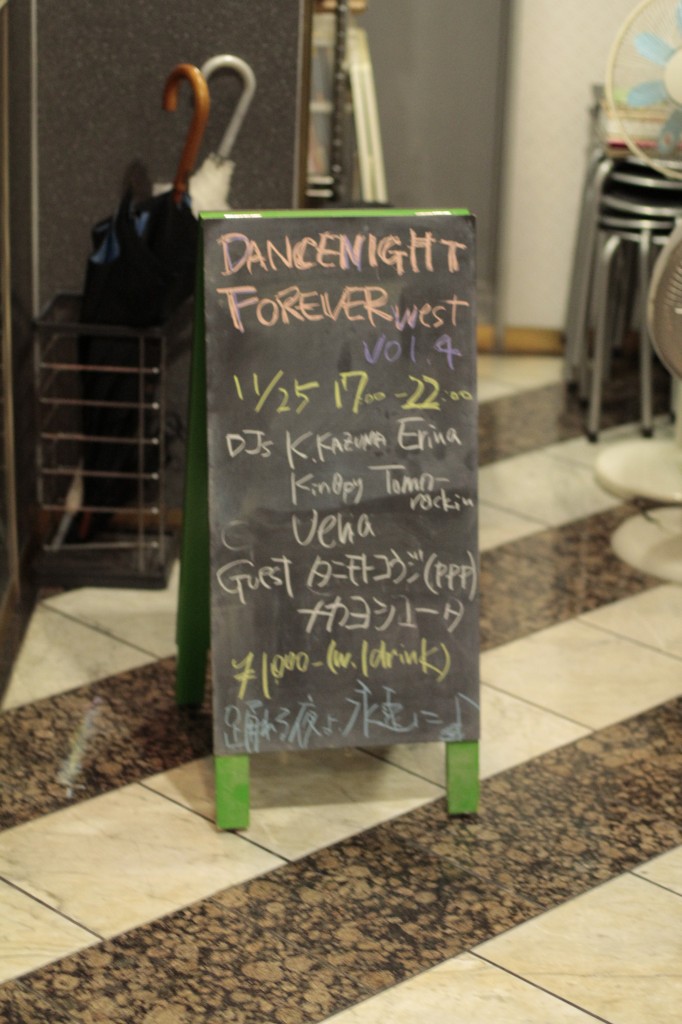 DANCENIGHT
FOREVER west
VOl.4
11/25 17:00-22:00
DJs K.KAZUMA Erina
Kinopy Tomo-
rockin
Uena
Guest タニモトコウジ(PPP)
ナカヨシユータ
¥1,000-(w.1drink)
踊れる夜よ永遠に♪